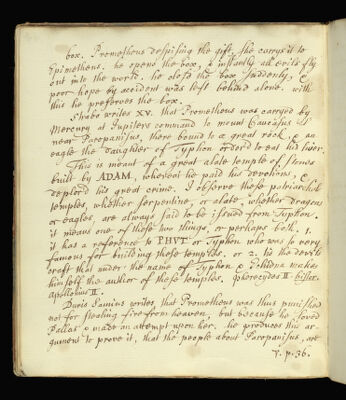 box. Prometheus despising the gift, she carrys it to
Epimetheus. he opens the box, & instantly all evils fly
out into the world. he clos'd the box suddenly, &
poor hope by accident was left behind alone. with
this he preserves the box.
Strabo writes XV. that Prometheus was carryed by
Mercury at Jupiters command to mount Caucasus is
near Paropanisus, there bound to a great rock, & an
eagle the daughter of Typhon order'd to eat his liver.
This is meant of a great alate temple of stones
built by ADAM, whereat he paid his devotions, &
deplor'd his great crime. I observe these patriarchal
temples, whether serpentine, or alate, whether dragons
or eagles, are always said to be issued from Typhon.
it means one of these two things, or perhaps both. 1.
it has a reference to PHVT or Typhon who was so very
famous for building these temples. or 2. tis the devils
craft that under the name of Typhon & Echidna makes
himself the author of these temples. pherecydes II. histor.
apollonius II.
Duris Samius writes, that Prometheus was thus punished
not for stealing fire from heaven, but because he loved
Pallas & made an attempt upon her. he produces this ar-
gument to prove it, that the people about Paropanisus, are
V. p. 36.